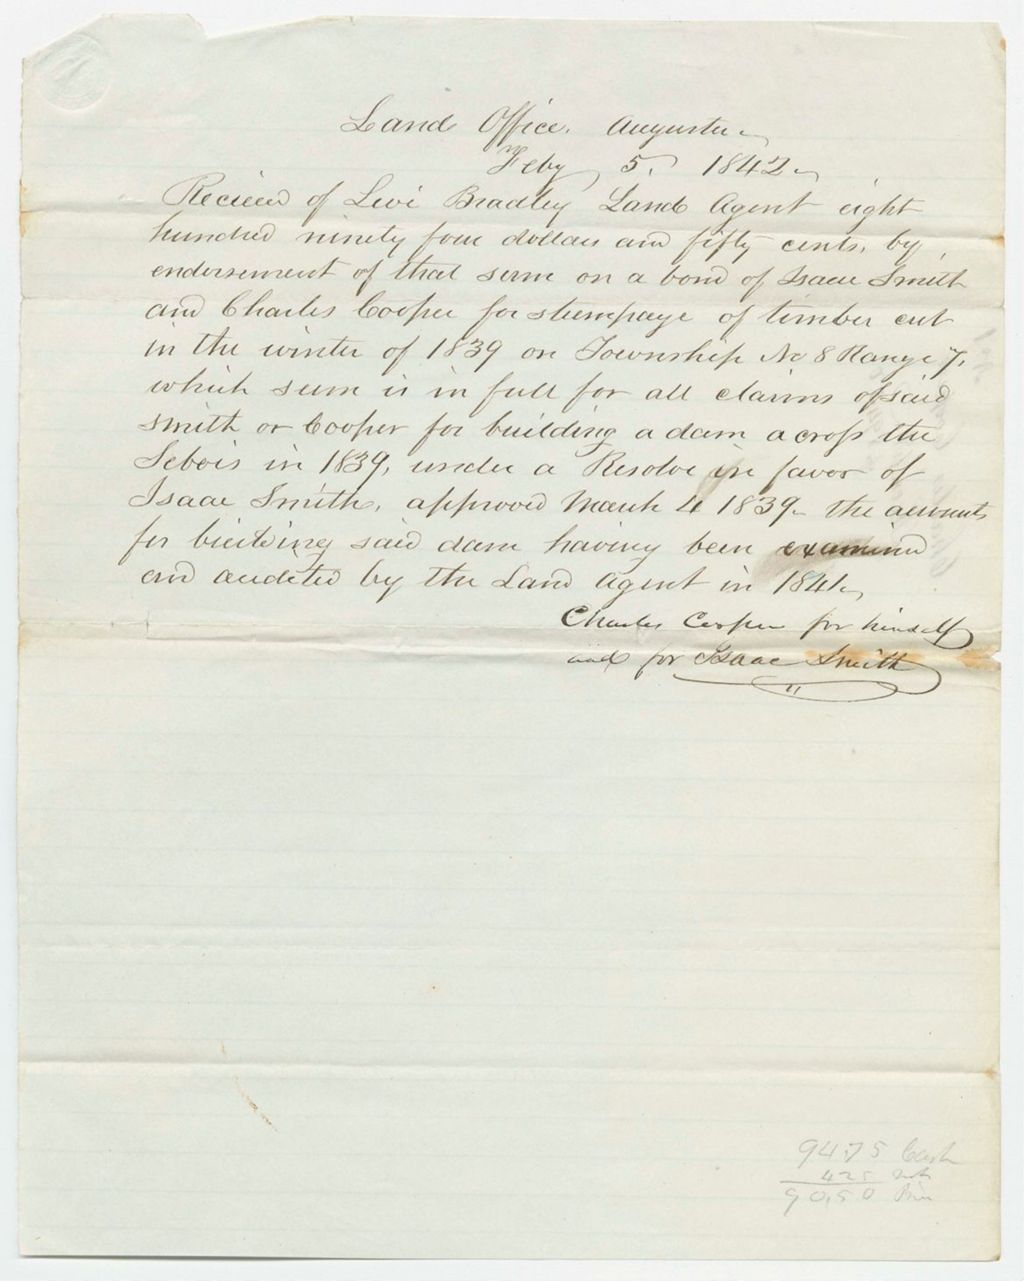 Land Office. Augusta
Feby 5. 1842
Recieved of Levi Bradley Land Agent eight
hundred ninety four dollars and fifty cents, by
endorsement of that sum on a bond of Isaac Smith
and Charles Cooper for stumpage of timber cut
in the winter of 1839 on Township No 8 Range 7,
which sum is in full for all claims of said
Smith or Cooper for building a dam across the
Sebois in 1839, under a Resolve in favor of
Isaac Smith, approved March 4 1839 - the accounts
for building said dam having been examined
and audited by the Land Agent in 1841
Charles Cooper for himself
and for Isaac Smith
94.75 Cash
4 25
90,50